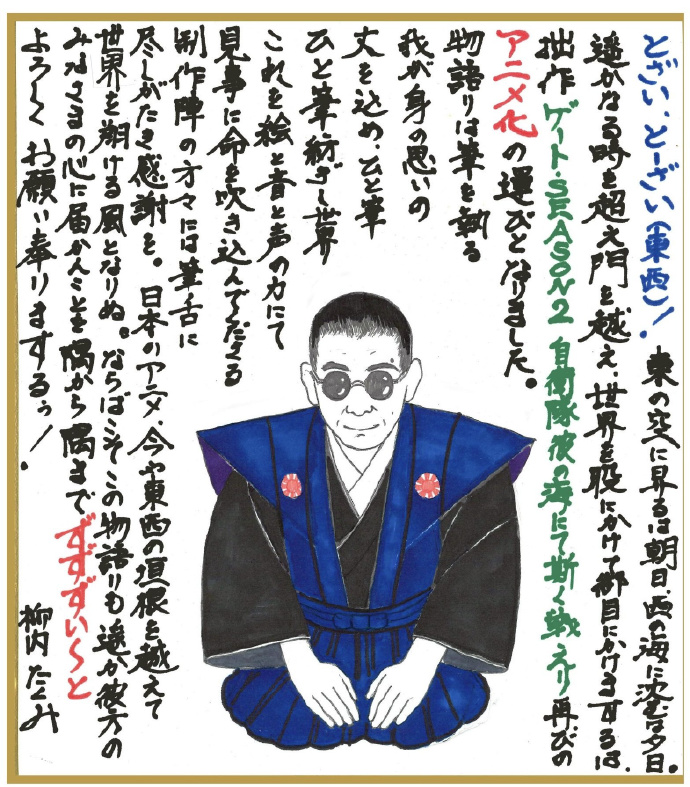 とざい、とーざい(東西)！ 東の空に昇るは朝日、西の海に沈むは夕日。
遥かなる時を超え門を越え、世界を股にかけて御目にかけまするは、
拙作ゲート・SEASON2 自衛隊彼の海にて斯く戦えり再びの
アニメ化の運びとなりました。
物語りは筆を執る
我が身の思いの
丈を込め、ひと筆
ひと筆、紡ぎし世界
これを絵と音と声の力にて
見事に命を吹き込んでくださる
制作陣の方々には筆舌に
尽しがたき感謝を。日本のアニメ、今や東西の垣根を越えて
世界を翔ける風となりぬ。ならばこそこの物語りも遠か彼方の
みなさまの心に届かんことを隅から隅までずずずい〜と
よろしくお願い奉りまするぅ！。
柳内たくみ